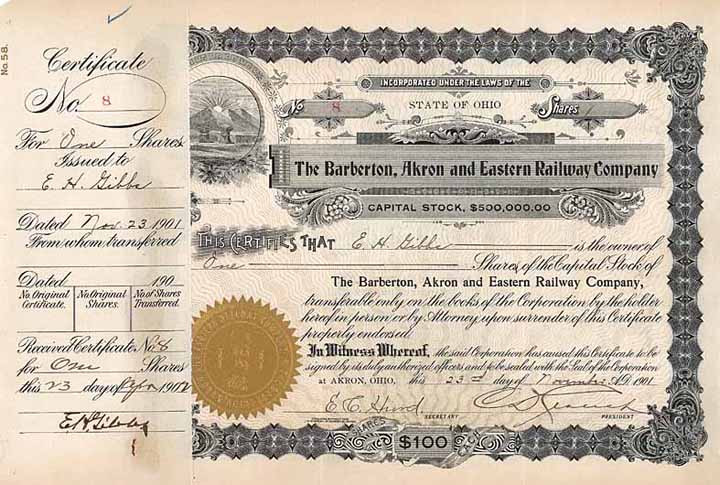 No. 58.
Certificate
No. 8
For One Shares
Issued to
E. H. Gibbs
Dated Nov. 23 1901
From whom transferred
Dated 190
No. Original Certificate. No. Original Shares. No. of Shares Transferred.
Received Certificate No. 8
for One Shares
this 23 day of 1902
E H Gibbs
INCORPORATED UNDER THE LAWS OF THE
STATE OF OHIO
No 8
Shares 1
The Barberton, Akron and Eastern Railway Company
CAPITAL STOCK, $500,000.00
THIS CERTIFIES THAT E. H. Gibbs is the owner of
One Shares of the Capital Stock of
The Barberton, Akron and Eastern Railway Company,
transferable only on the books of the Corporation by the holder
hereof in person or by Attorney upon surrender of this Certificate
properly endorsed.
In Witness Whereof, the said Corporation has caused this Certificate to be
signed by its duly authorized officers and to be sealed with the Seal of the Corporation
at AKRON, OHIO, this 23rd day of November A.D. 1901.
SECRETARY
PRESIDENT
SHARES
$100
EACH